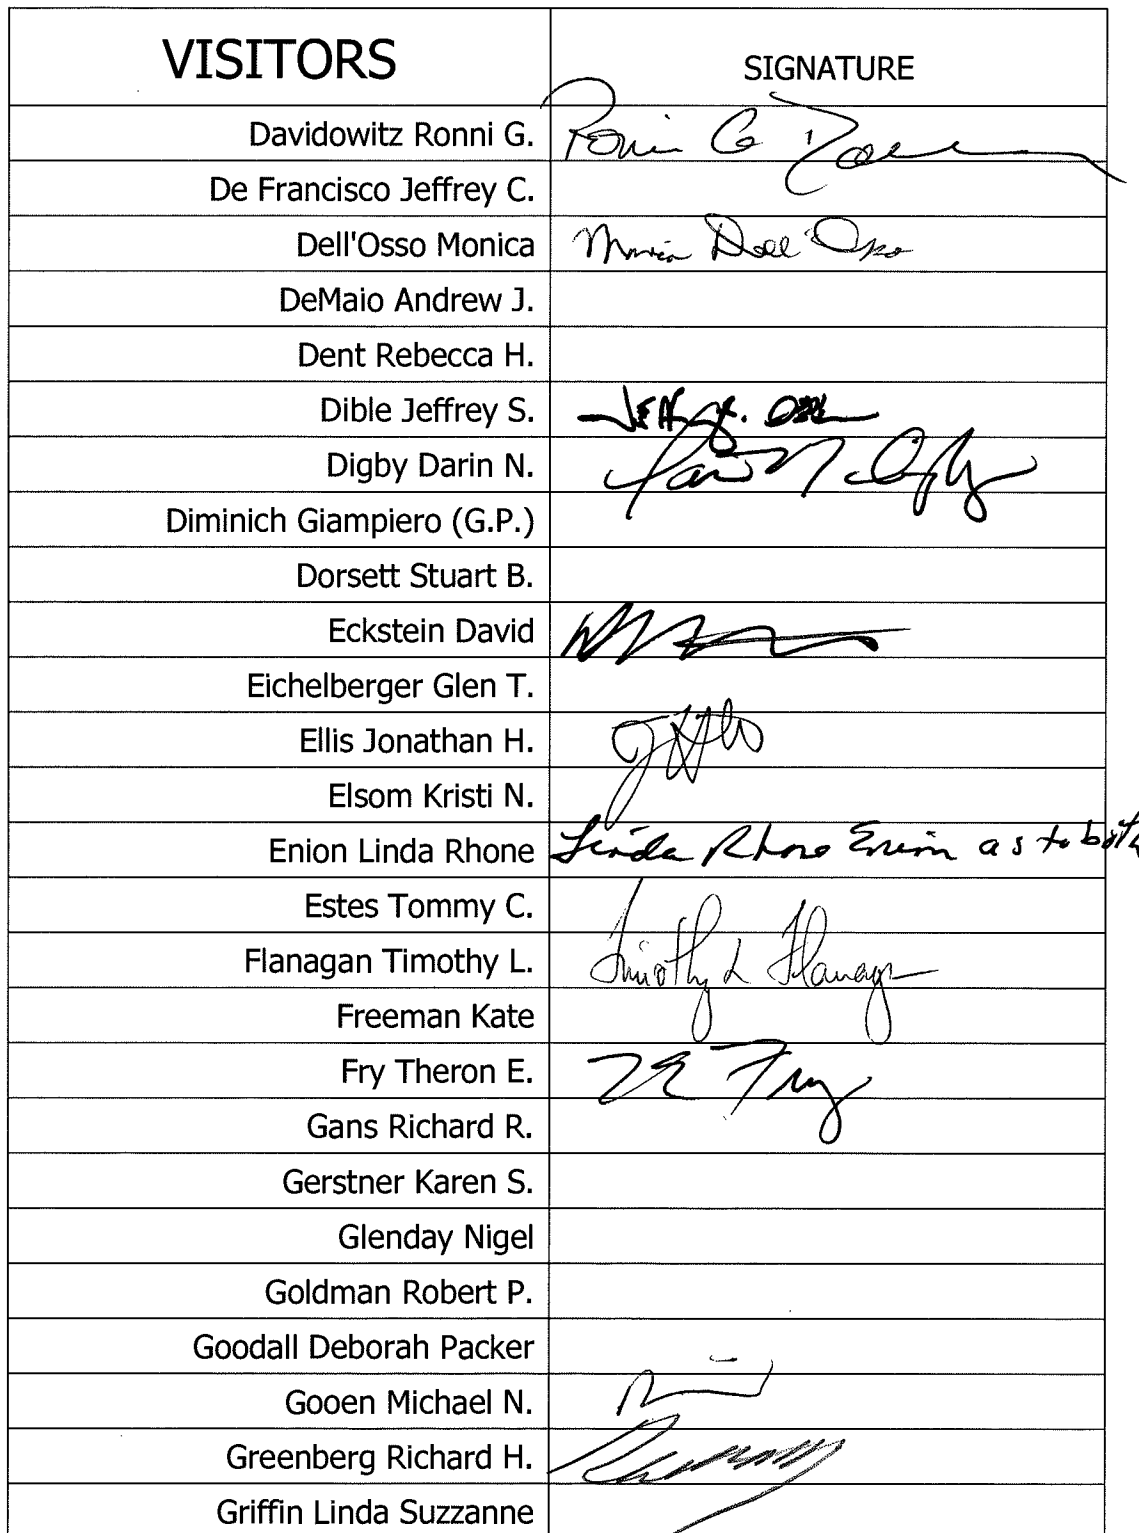 VISITORS SIGNATURE
Davidowitz Ronni G. Ronni G
De Francisco Jeffrey C.
Dell'Osso Monica Monica Dell'Osso
DeMaio Andrew J.
Dent Rebecca H.
Dible Jeffrey S.
Digby Darin N. Darin N Digby
Diminich Giampiero (G.P.)
Dorsett Stuart B.
Eckstein David
Eichelberger Glen T.
Ellis Jonathan H.
Elsom Kristi N.
Enion Linda Rhone Linda Rhone Enion as to both
Estes Tommy C.
Flanagan Timothy L. Timothy L Flanagan
Freeman Kate
Fry Theron E. TE Fry
Gans Richard R.
Gerstner Karen S.
Glenday Nigel
Goldman Robert P.
Goodall Deborah Packer
Gooen Michael N.
Greenberg Richard H.
Griffin Linda Suzzanne